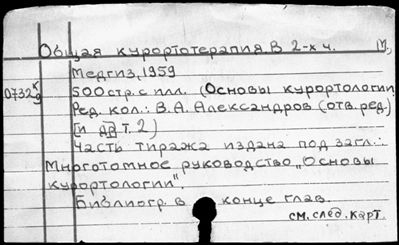 Общая курортотерапия. В 2-х ч. М.,
Медгиз, 1959
0732 к/9 500 стр. с илл. (Основы курортологии.
Ред. кол.: В.А. Александров (отв. ред.)
[и др.] Т. 2)
Часть тиража издана под загл.:
Многотомное руководство „Основы
курортологии".
Библиогр. в конце глав.
см. след. карт.